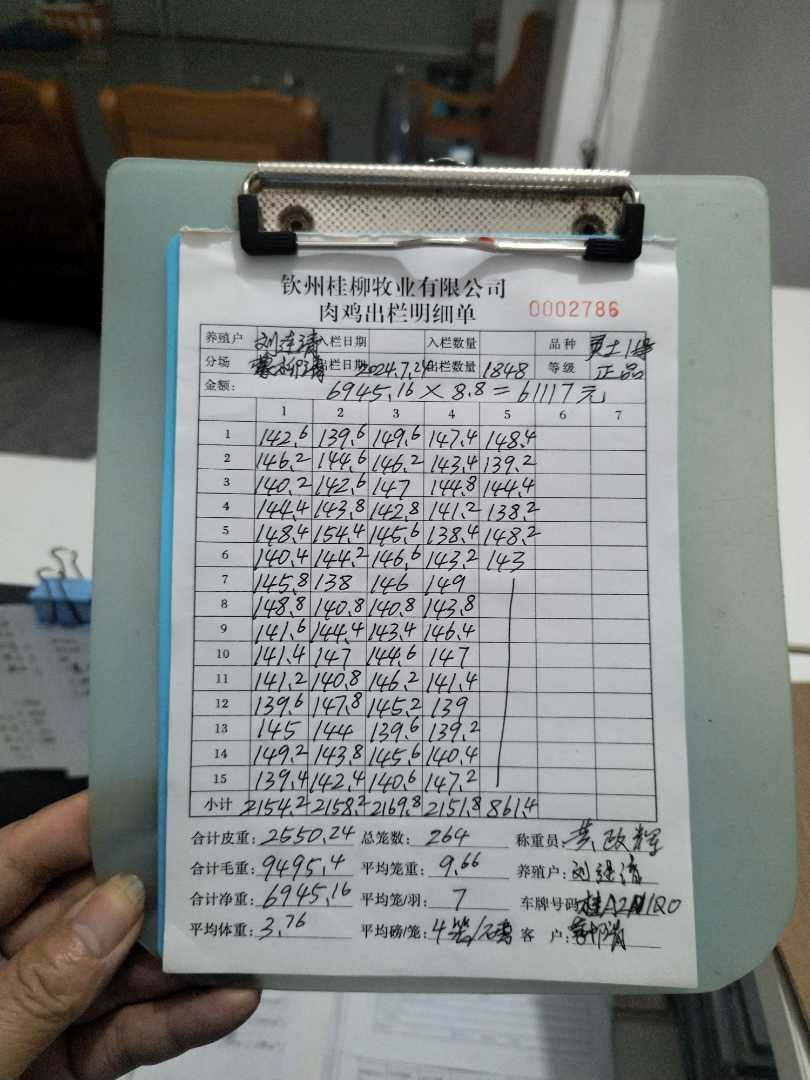 钦州桂柳牧业有限公司
肉鸡出栏明细单 0002786
养殖户 入栏日期 入栏数量 品种
分场 出栏日期 2024.7.24 出栏数量 1848 等级 正品
金额: 6945.16 × 8.8 = 61117元
1 2 3 4 5 6 7
1 142.6 139.6 149.6 147.4 148.4
2 146.2 144.6 146.2 143.4 139.2
3 140.2 142.6 147 144.8 144.4
4 144.4 143.8 142.8 141.2 138.2
5 148.4 154.4 145.6 138.4 148.2
6 140.4 144.2 146.6 143.2 143
7 145.8 138 146 149
8 148.8 140.8 140.8 143.8
9 141.6 144.4 143.4 146.4
10 141.4 147 144.6 147
11 141.2 140.8 146.2 141.4
12 139.6 147.8 145.2 139
13 145 144 139.6 139.2
14 149.2 143.8 145.6 140.4
15 139.4 142.4 140.6 147.2
小计 2154.2 2158.2 2169.8 2151.8 861.4
合计皮重: 2550.24 总笼数: 264 称重员:
合计毛重: 9495.4 平均笼重: 9.66 养殖户:
合计净重: 6945.16 平均笼/羽: 7 车牌号码:
平均体重: 3.76 平均磅/笼: 4笼/磅 客 户: